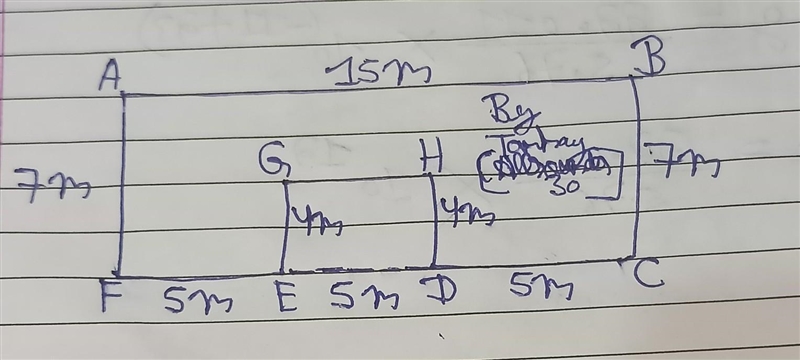 A 15m B
By
G H
7m 4m 4m 7m
30
F 5m E 5m D 5m C